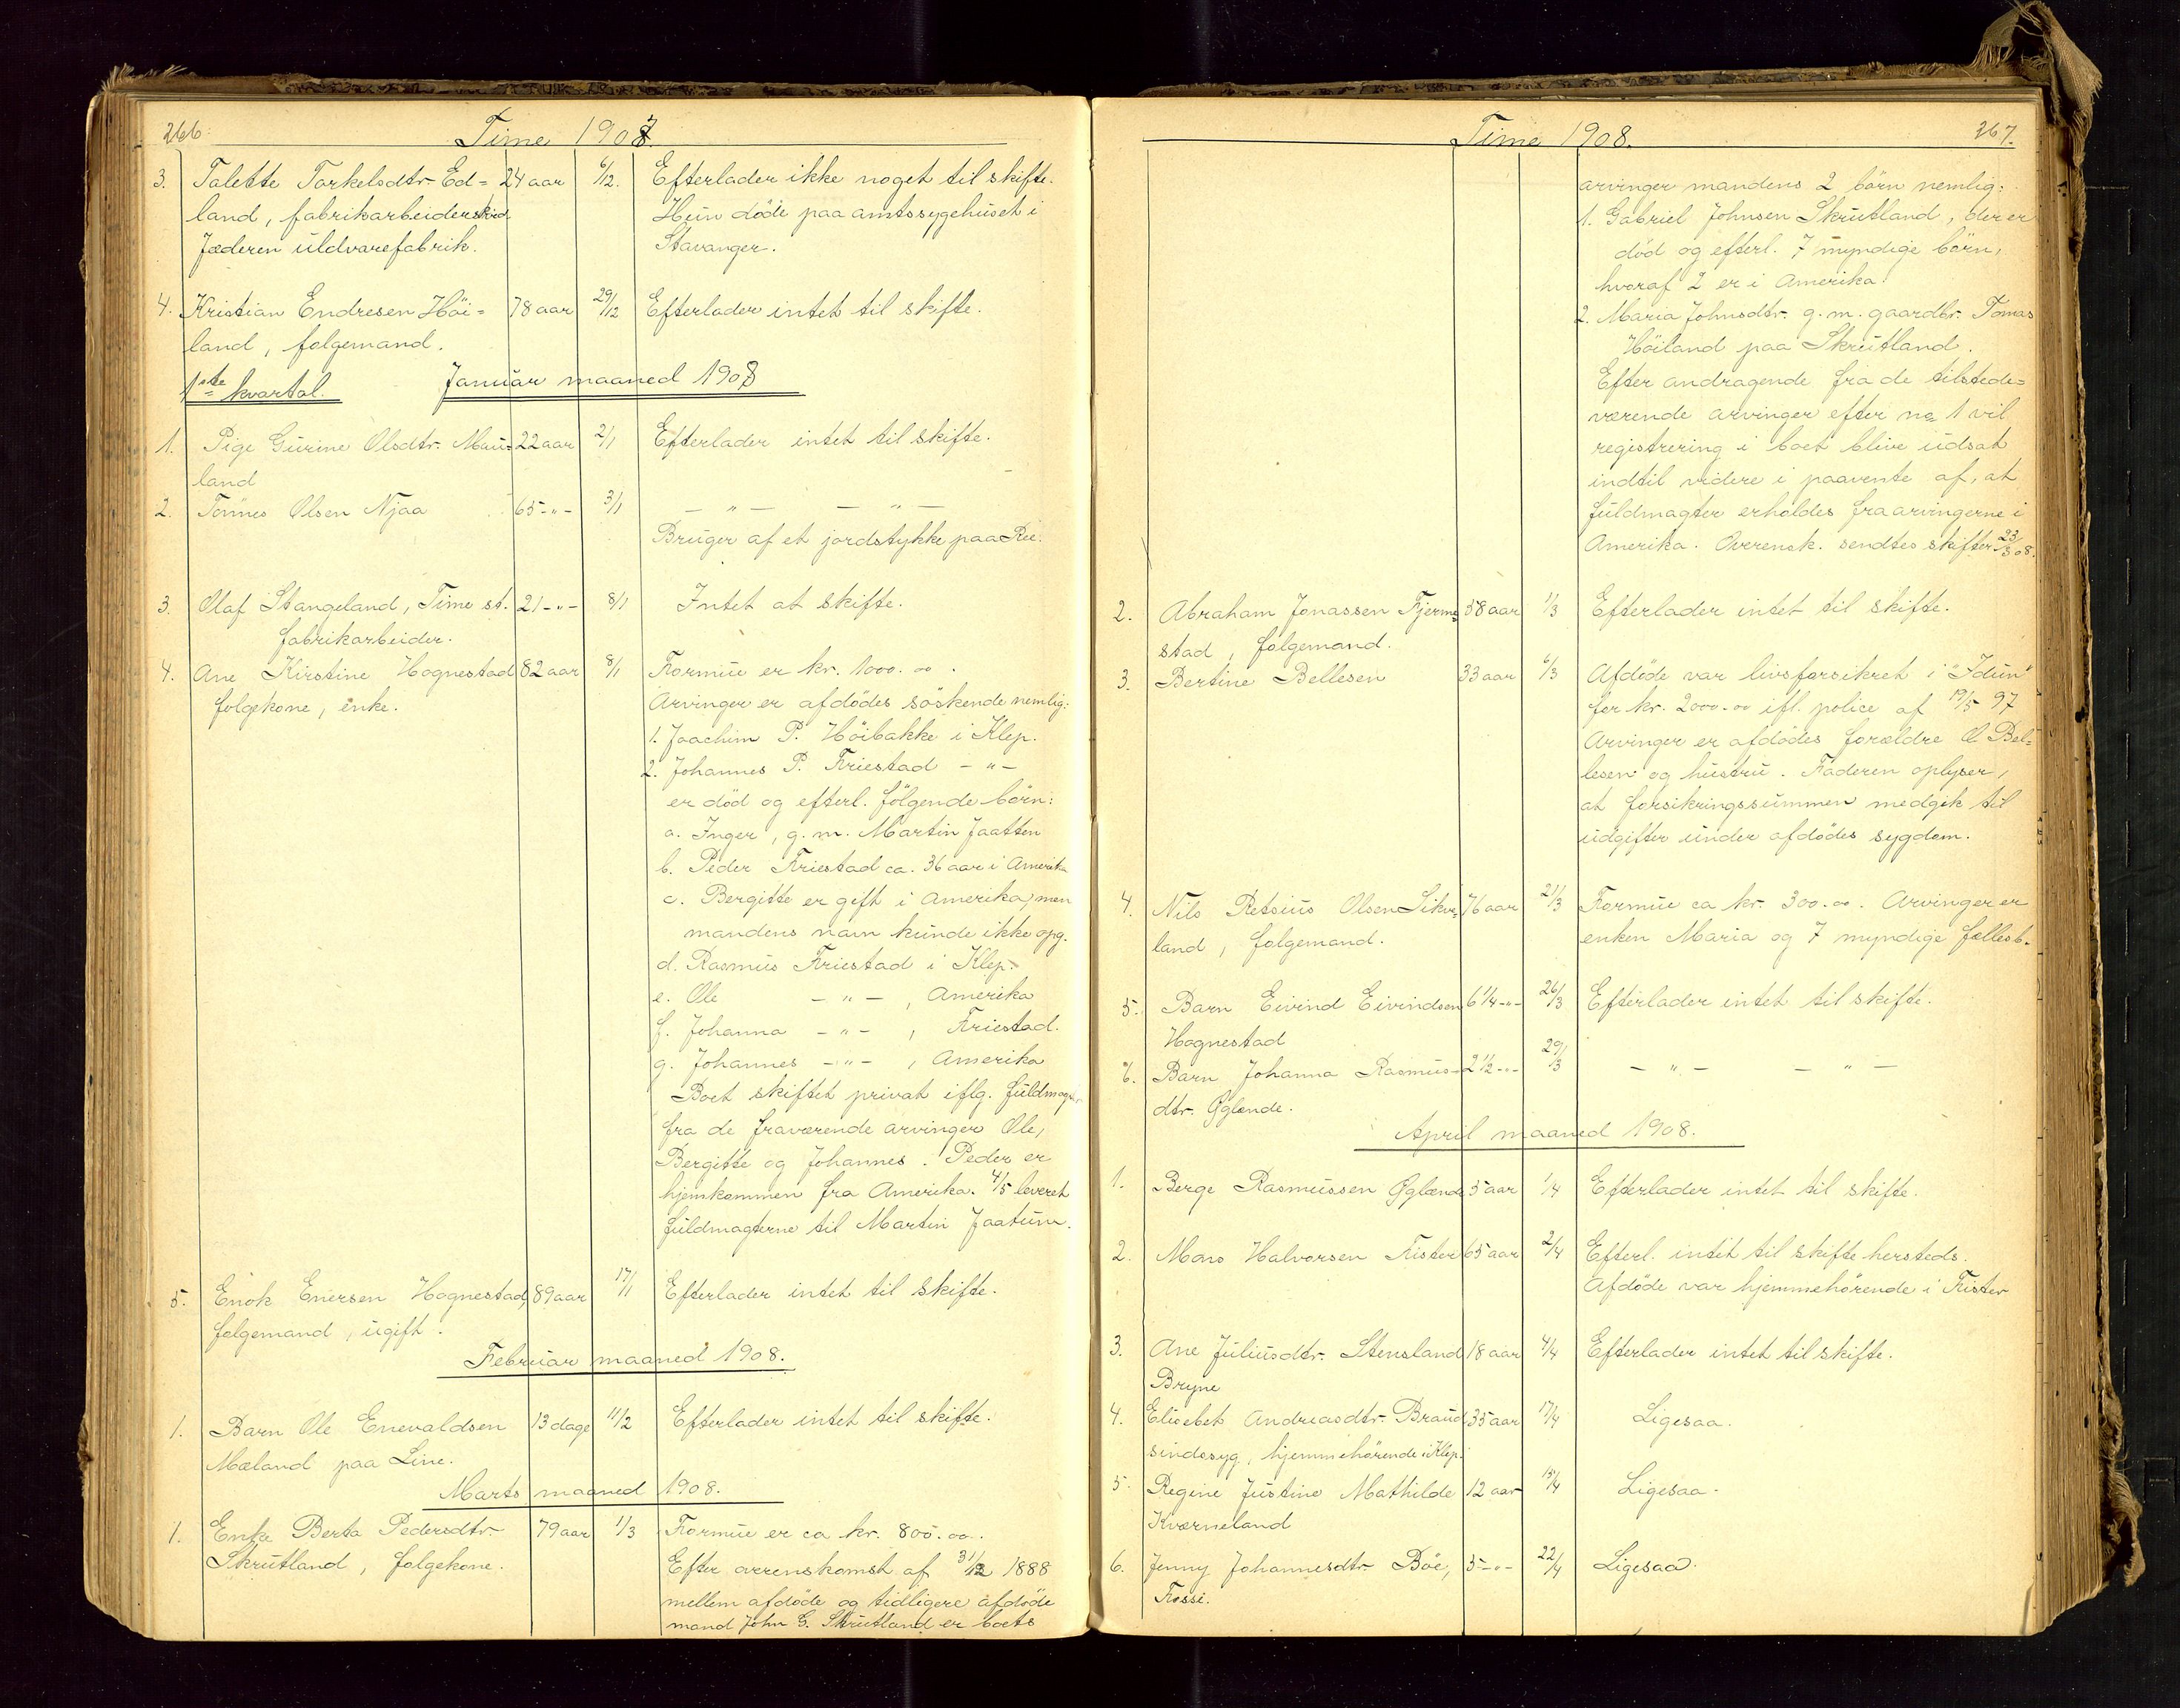 266.
Time 1907.
3. Talette Torkelsdtr. Ed= 24 aar 6/12. Efterlader ikke noget til skifte.
land, fabrikarbeiderske Hun døde paa amtssygehuset i
Jæderen uldvarefabrik. Stavanger.
4. Kristian Endresen Höi= 78 aar 29/12 Efterlader intet til skifte.
land, følgemand.
1ste kvartal. Januar maaned 1908
1. Pige Gurine Olsdtr. Mau= 22 aar 2/1 Efterlader intet til skifte.
land
2. Tönnes Olsen Njaa 65 - " - 3/1 — " — — " —
Bruger af et jordstykke paa Ree.
3. Olaf Stangeland, Time st. 21 - " - 8/1 Intet at skifte.
fabrikarbeider.
4. Ane Kirstine Hognestad 82 aar 8/1 Formue er kr. 1000.00.
følgekone, enke. Arvinger er afdødes söskende nemlig:
1. Joachim P. Höibakke i Klep.
2. Johannes P. Friestad - " -
er död og efterl. fölgende börn:
a. Inger, g. m. Martin Jaatten
b. Peder Friestad ca. 36 aar i Amerika
c. Bergitte er gift i Amerika, men
mandens navn kunde ikke opg.
d. Rasmus Friestad i Klep.
e. Ole - " - , Amerika
f. Johanna - " - , Friestad.
g. Johannes - " - , Amerika
Boet skiftet privat iflg. fuldmagter
fra de fraværende arvinger Ole,
Bergitte og Johannes. Peder er
hjemkommen fra Amerika. 4/5 leveret
fuldmagterne til Martin Jaatun.
5. Enok Enersen Hognestad, 89 aar 17/1 Efterlader intet til skifte.
følgemand, ugift.
Februar maaned 1908.
1. Barn Ole Enevaldsen 13 dage 11/2 Efterlader intet til skifte.
Mæland paa Line.
Marts maaned 1908.
1. Enke Berta Pedersdtr. 79 aar 1/3 Formue er ca kr. 800.00.
Skrutland, følgekone. Efter overenskomst af 31/12 1888
mellem afdøde og tidligere afdøde
mand John G. Skrutland er boets
Time 1908. 267.
arvinger mandens 2 börn nemlig:
1. Gabriel Johnsen Skrutland, der er
död og efterl. 7 myndige börn,
hvoraf 2 er i Amerika.
2. Maria Johnsdtr. g. m. gaardbr. Tomas
Höiland paa Skrutland.
Efter andragende fra de tilstede=
værende arvinger efter no 1 vil
registrering i boet blive udsat
indtil videre i paavente af, at
fuldmagter erholdes fra arvingerne i
Amerika. Overensk. sendtes skifter. 23/3 08.
2. Abraham Jonassen Fjerme= 58 aar 1/3 Efterlader intet til skifte.
stad, følgemand.
3. Bertine Bellesen 33 aar 6/3 Afdöde var livsforsikret i "Idun"
for kr. 2000.00 ifl. police af 19/5 97
Arvinger er afdødes forældre O. Bel=
lesen og hustru. Faderen oplyser,
at forsikringssummen medgik til
udgifter under afdødes sygdom.
4. Nils Retsius Olsen Sikve= 76 aar 21/3 Formue ca kr. 300.00. Arvinger er
land, følgemand. enken Maria og 7 myndige fællesb.
5. Barn Eivind Eivindsen 6 1/4 - " - 26/3 Efterlader intet til skifte.
Hognestad
6. Barn Johanna Rasmus- 2 1/2 - " - 29/3 — " — — " —
dtr. Øglænde.
April maaned 1908.
1. Berge Rasmussen Øglænde 5 aar 1/4 Efterlader intet til skifte.
2. Mons Halvorsen Fister 65 aar 2/4 Efterl. intet til skifte hersteds.
Afdøde var hjemmehørende i Fister
3. Ane Juliusdtr. Stensland 18 aar 4/4 Efterlader intet til skifte.
Bryne
4. Elisebet Andreasdtr. Braud 35 aar 17/4 Ligesaa.
sindssyg, hjemmehörende i Klep.
5. Regine Justine Mathilde 12 aar 15/4 Ligesaa.
Kværneland
6. Jenny Johannesdtr. Böe, 5 - " - 22/4 Ligesaa.
Fosse.